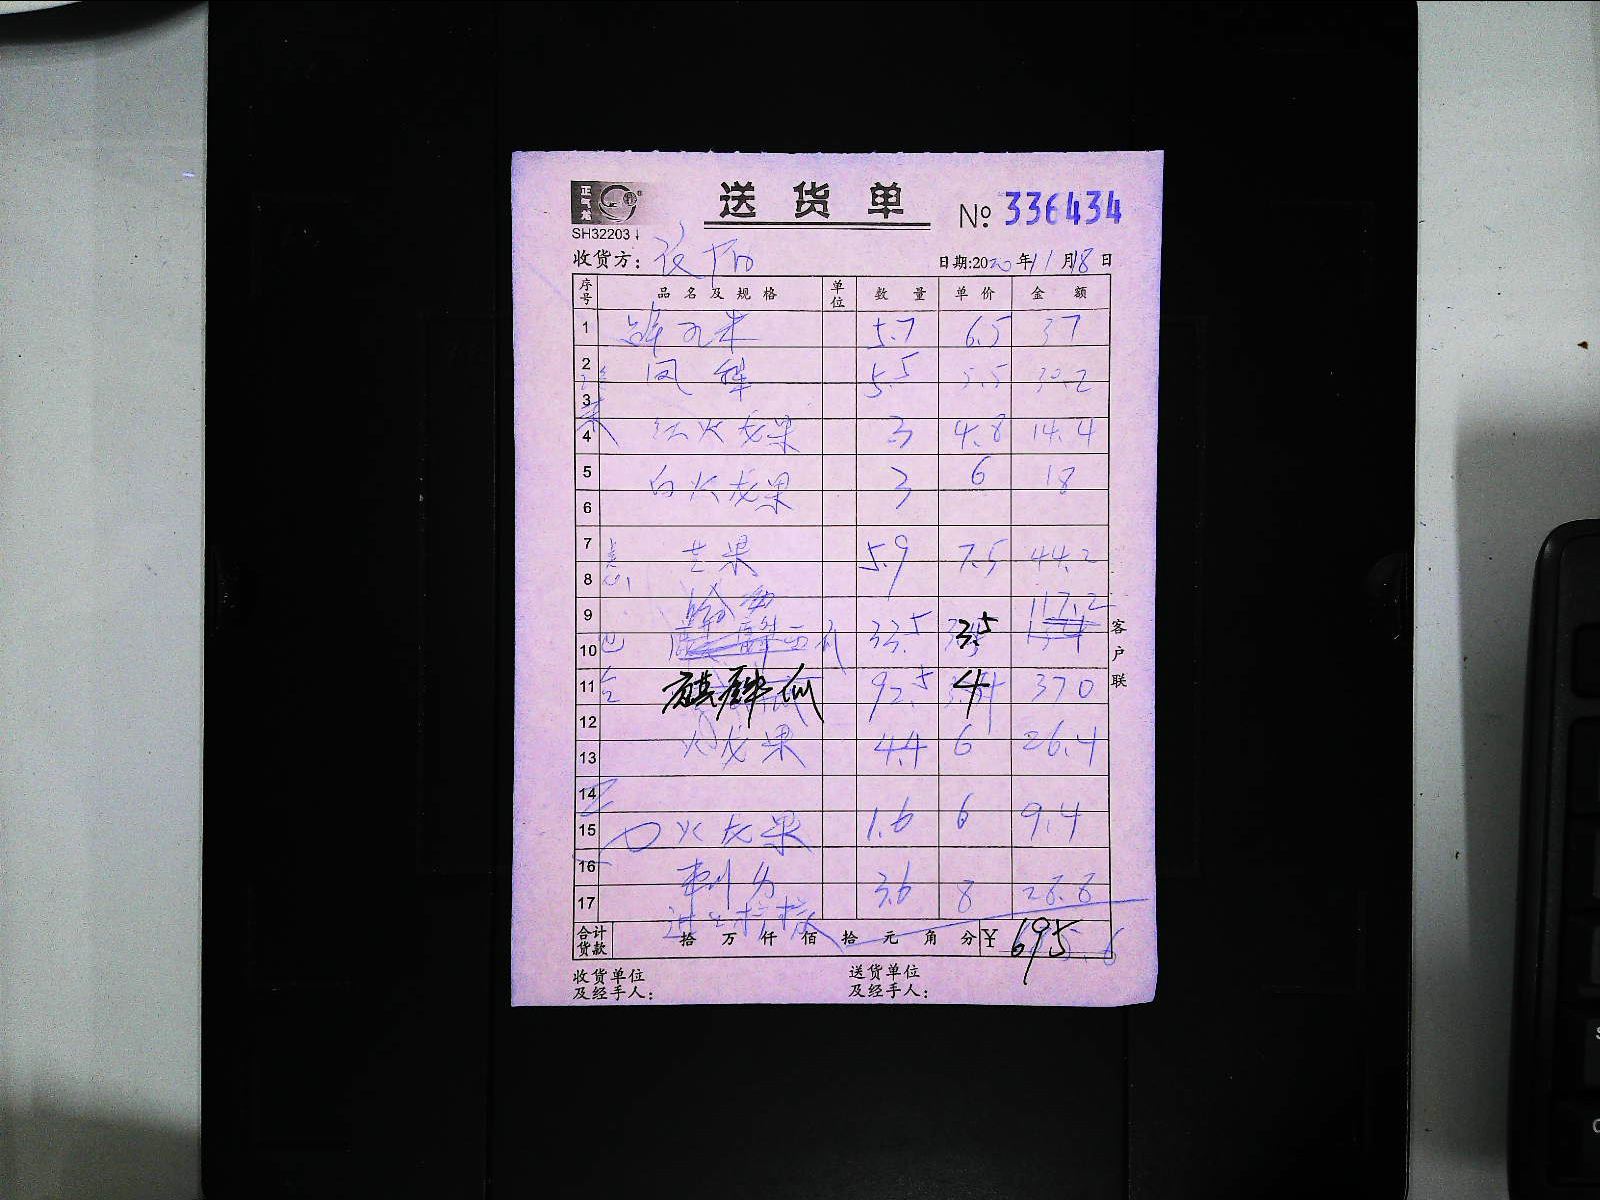 正气龙
送货单 № 336434
SH32203
收货方： 日期:2020年11月18日
序号 品名及规格 单位 数量 单价 金额
1 5.7 6.5 37
2 凤梨 5.5 5.5 30.2
3
4 红火龙果 3 4.8 14.4
5 白火龙果 3 6 18
6
7 芒果 5.9 7.5 44.2
8
9 117.2
10 33.5 3.5
11 麒麟瓜 92.5 4 370
12
13 火龙果 4.4 6 26.4
14
15 火龙果 1.6 6 9.4
16
17 3.6 8 28.8
合计货款 拾 万 仟 佰 拾 元 角 分 ¥ 695
客户联
收货单位及经手人： 送货单位及经手人：